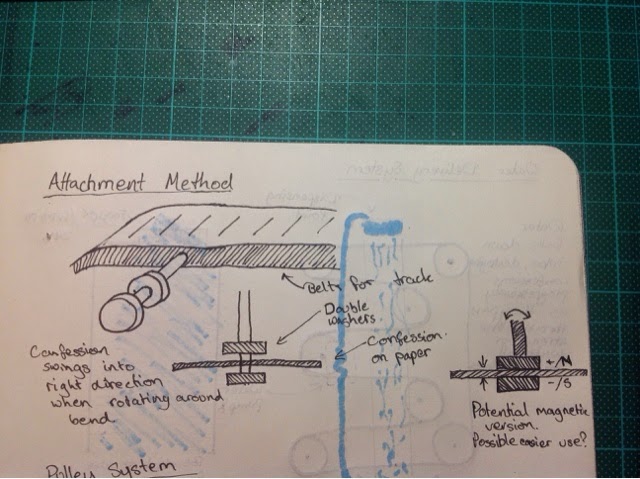 Attachment Method
Belt for track
Double
washers
Confession
on paper
Confession
swings into
right direction
when rotating around
bend.
+/N
-/S
Potential magnetic
version.
Possible easier use?
Pulley System